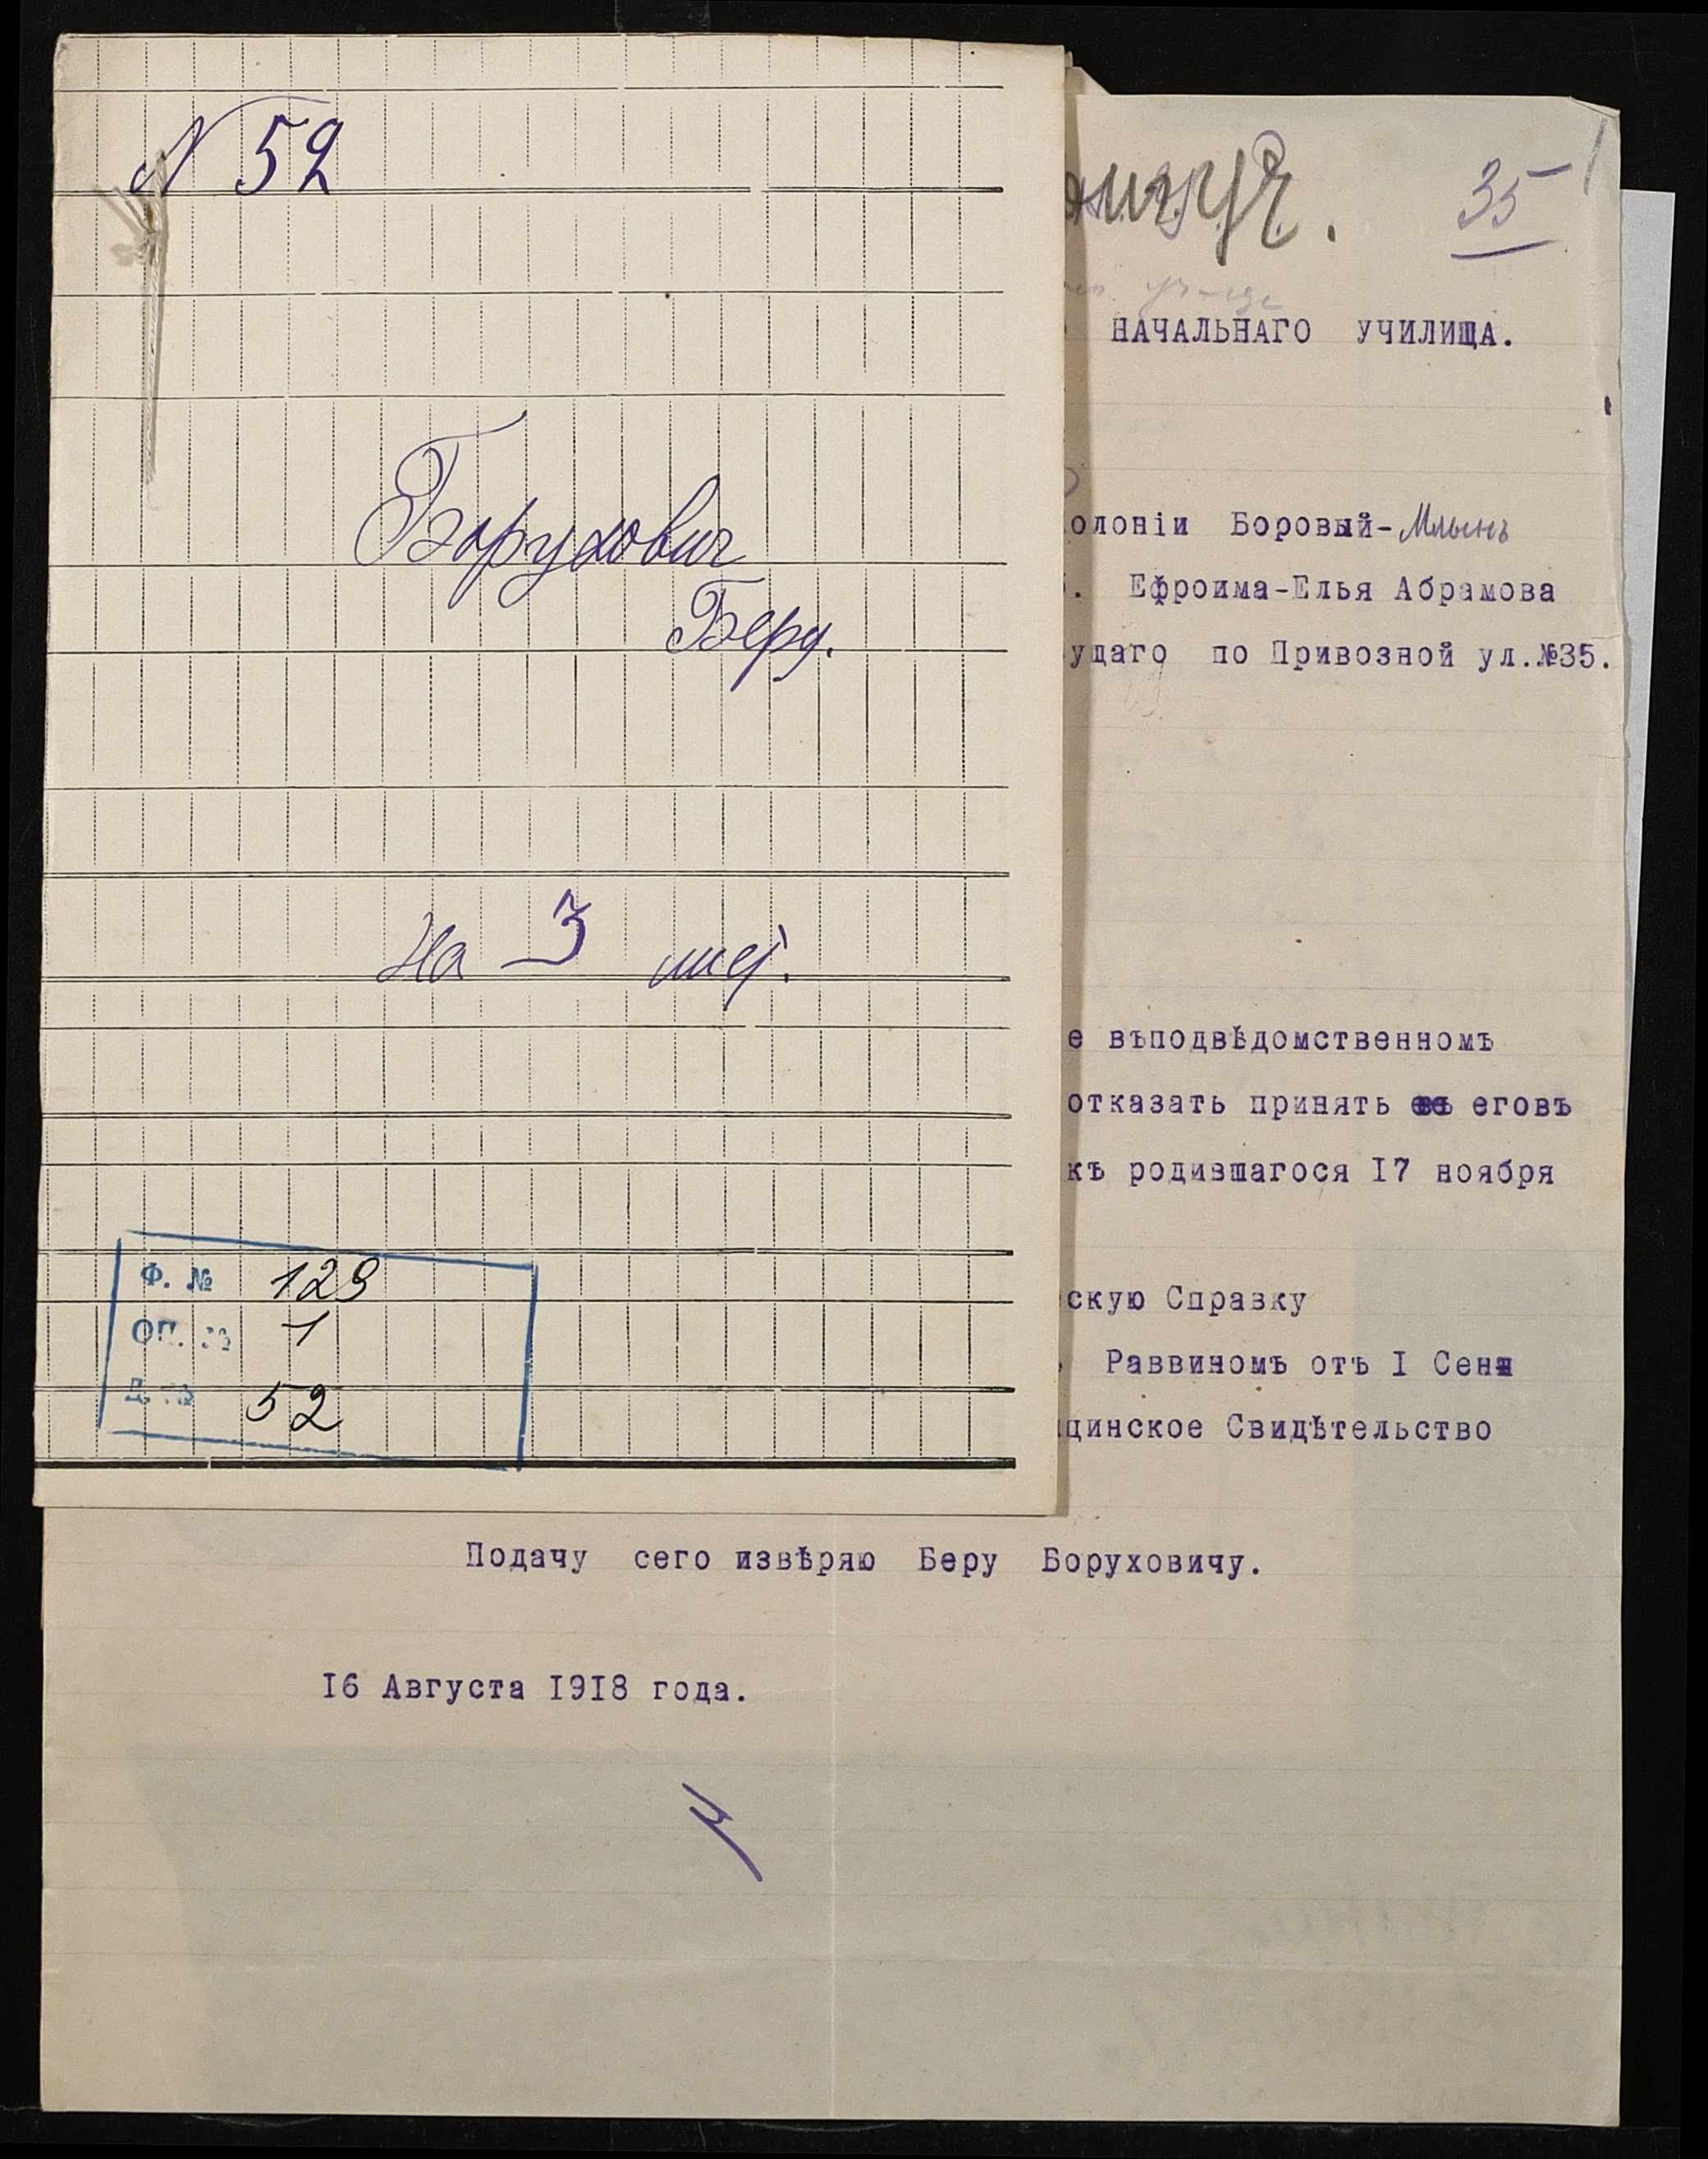 N 52
Борухович
Берд.
На 3 лист.
Ф. № 129
ОП. № 1
Д. № 52
35
НАЧАЛЬНАГО УЧИЛИЩА.
олоніи Боровый-Млынъ
. Ефроима-Елья Абрамова
ущаго по Привозной ул.№35.
е въподвѣдомственномъ
отказать принять еговъ
къ родившагося I7 ноября
скую Справку
Раввиномъ отъ I Сен
цинское Свидѣтельство
Подачу сего извѣряю Беру Боруховичу.
I6 Августа I9I8 года.